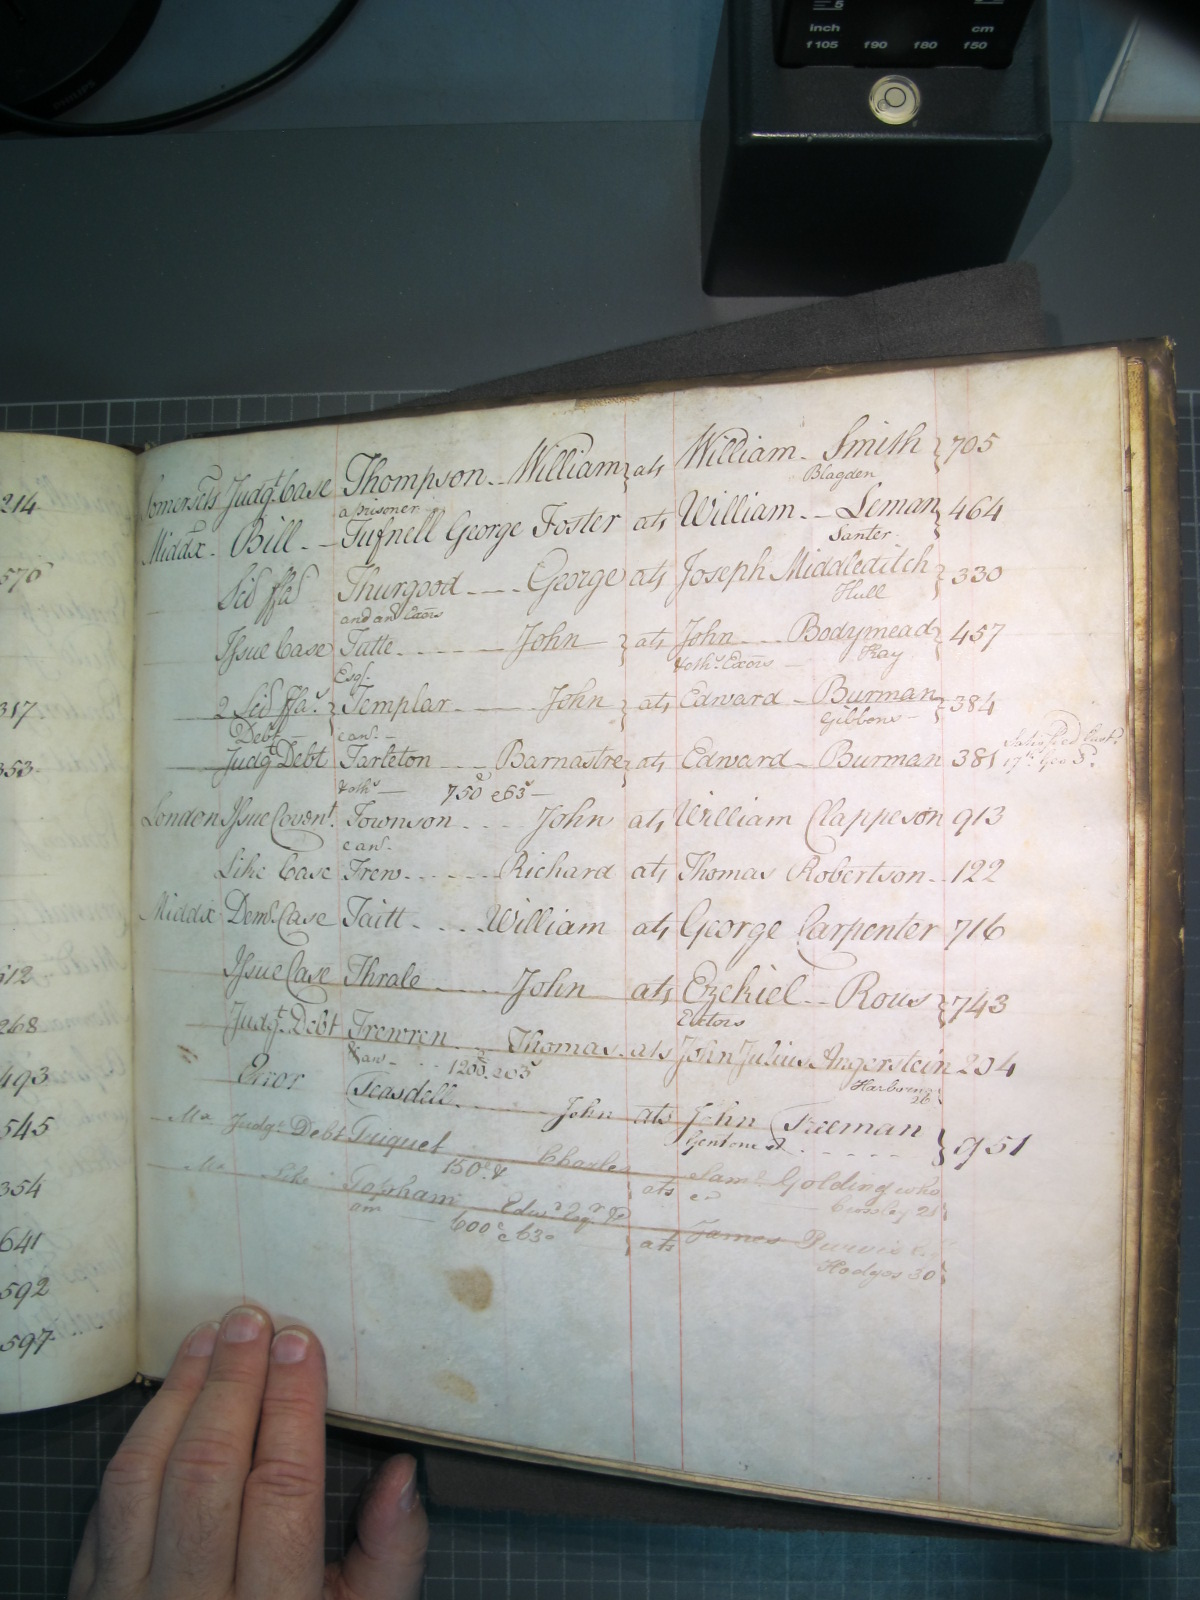 5
inch cm
f105 f90 f80 f50
PHILIPS
214
570
317
353
512
268
493
545
354
641
592
597
Somersets Judgt. Case Thompson William } ats William Smith } 705
a prisoner Blagden
Middx. Bill Tufnell George Foster ats William Leman } 464
Santer
Sci ffa Thurgood George ats Joseph Middleditch } 330
and anr Exors Hull
Issue Case Tatte John } ats John Bodymead } 457
Esqr. & othrs Exors Kay
2 Sci ffas. Templar John } ats Edward Burman } 384
Debt Gibbons
Judgt Debt Tarleton Barnastre } ats Edward Burman 381 Satisfied
& othrs 750 & 63s 17th Geo
London Issue Covent. Townson John ats William Clappeson 913
Like Case Trew Richard ats Thomas Robertson 122
Middx Demr. Case Taitt William ats George Carpenter 716
Issue Case Thrale John ats Ezekiel Rous } 743
Exctors
Judgt. Debt Frewren Thomas ats John Julius Angerstein 234
& anr 1200 & 63s Harborne
26
Error Teasdell John ats John Freeman } 951
Gentone
Mx Judgt Debt Triquet Charles ats Saml. Golding who
150£ & Crossley 21
Mx Like Topham Edwd Esqr } ats James Purvis
600£ & 63s Hodges 30